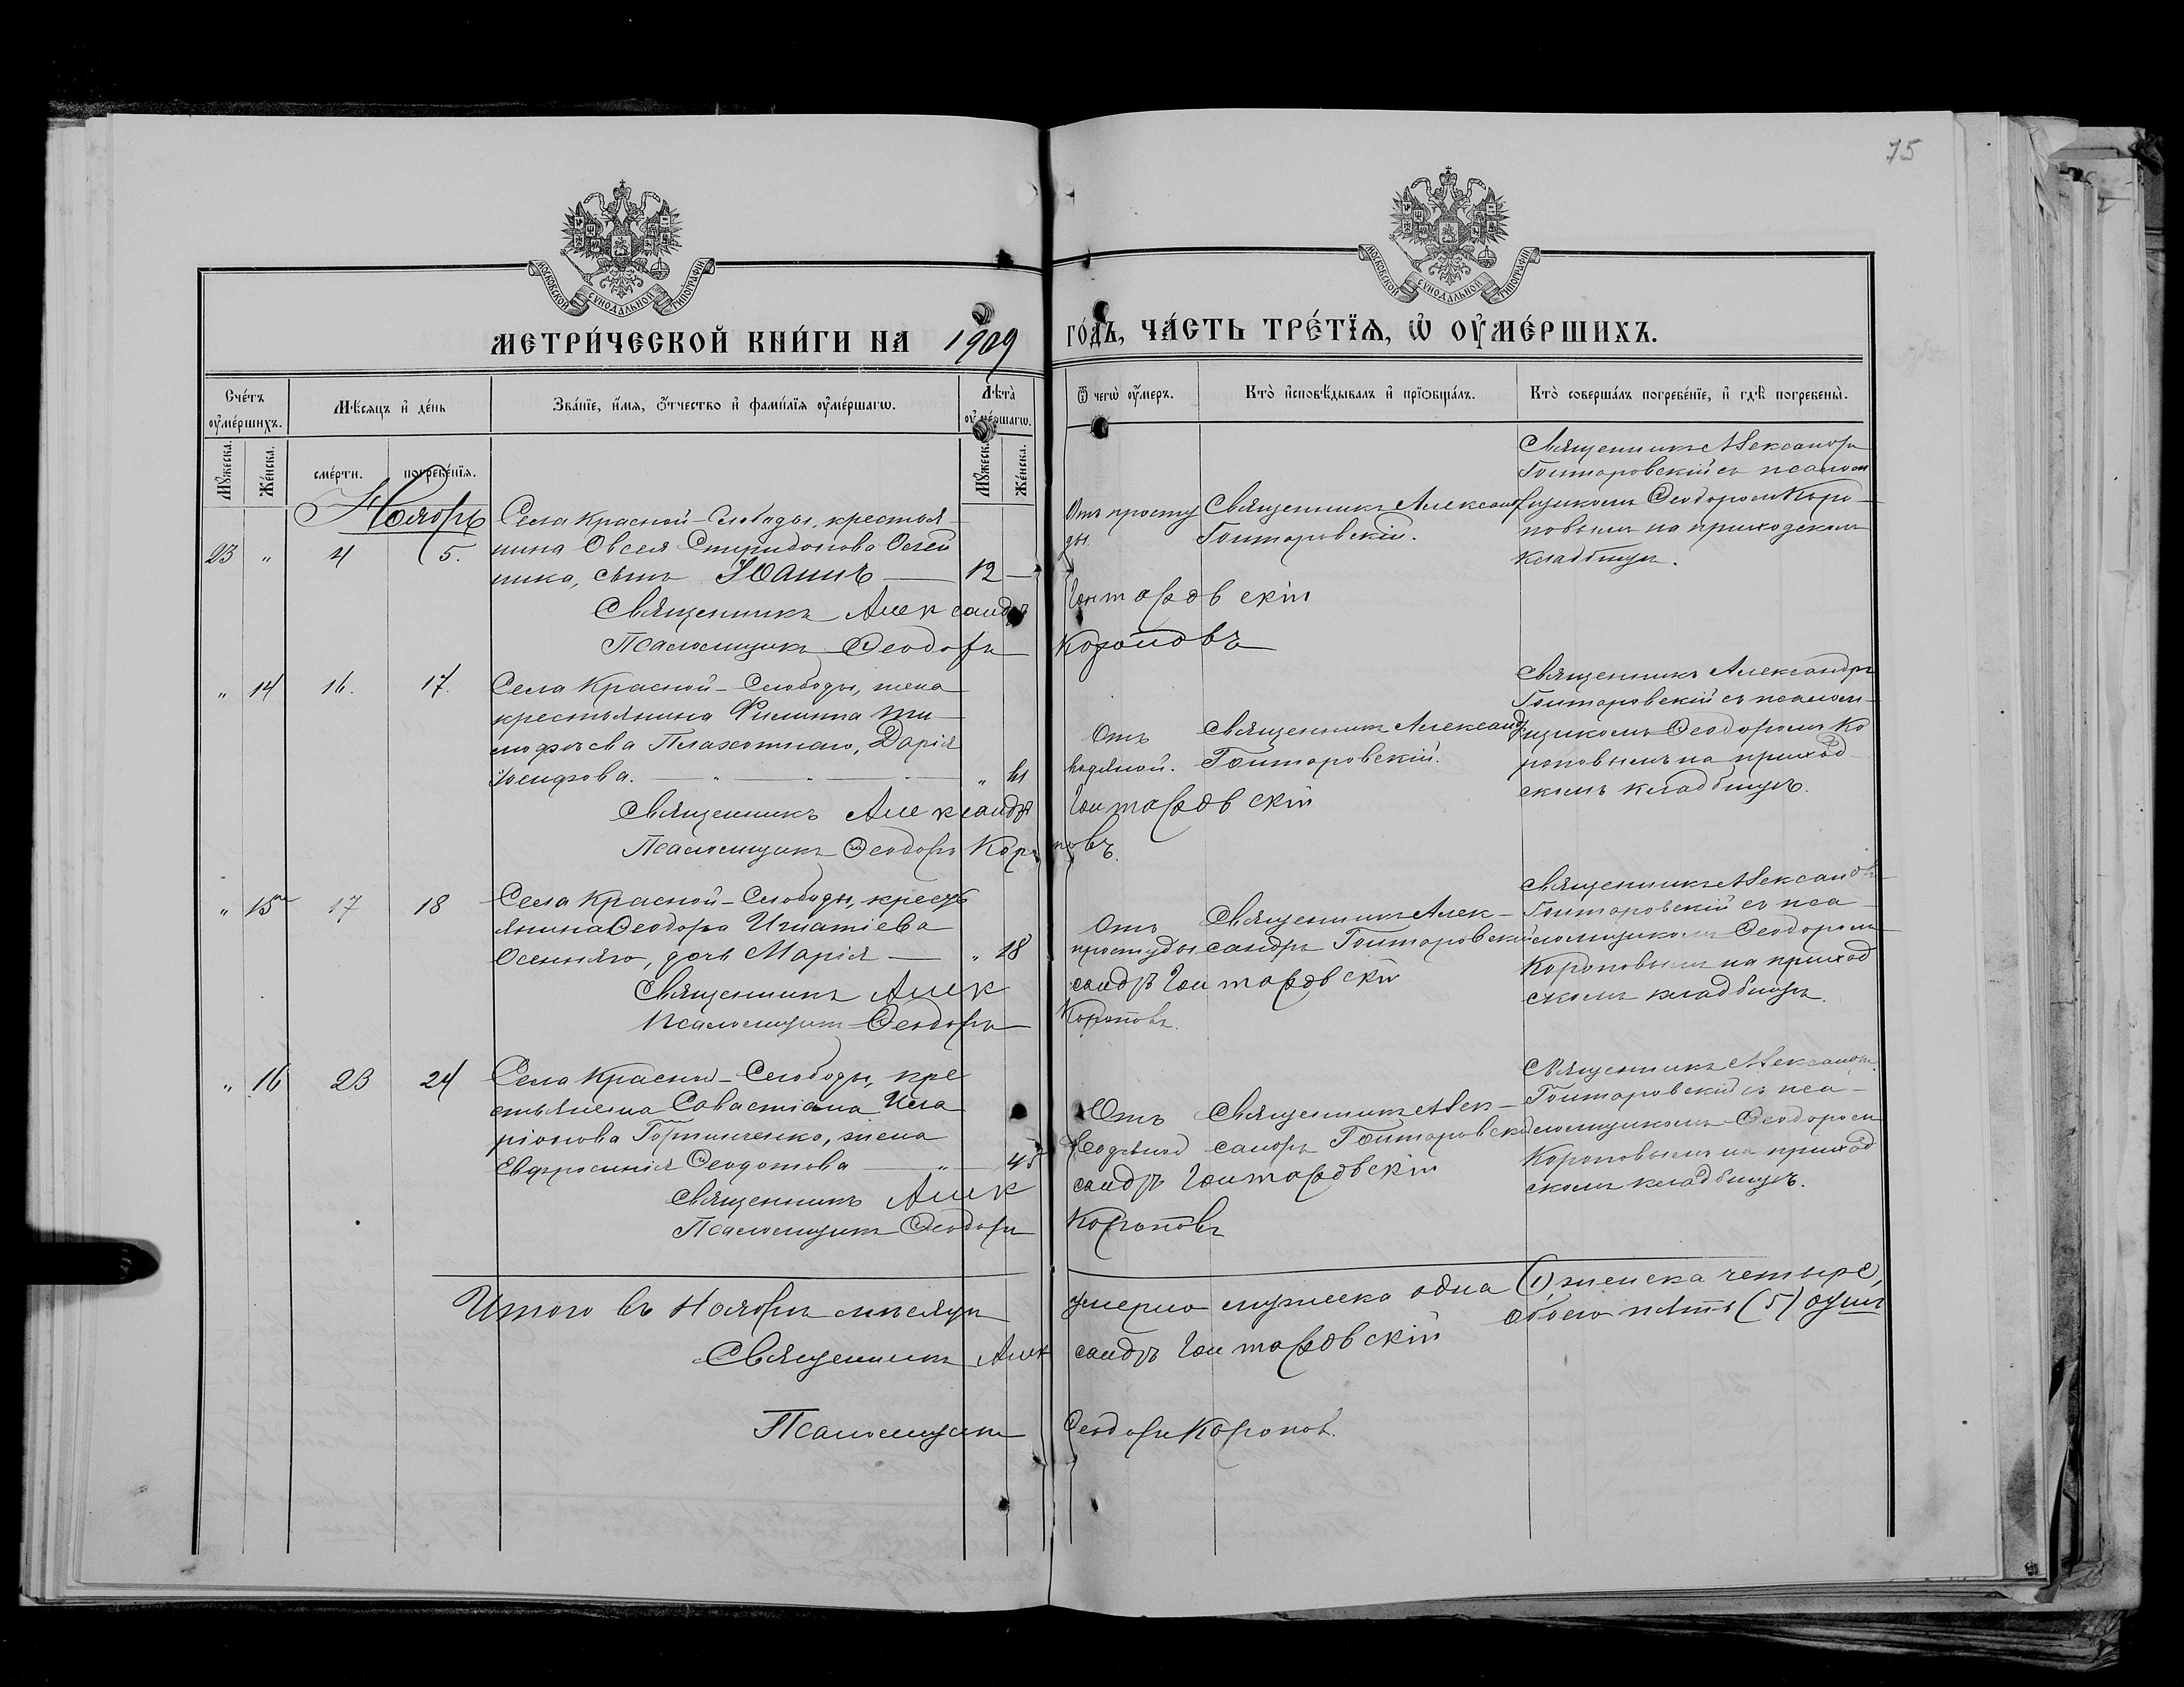 75
МОСКОВСКОЙ СУНОДАЛЬНОЙ ТИПОГРАФІИ
МОСКОВСКОЙ СУНОДАЛЬНОЙ ТИПОГРАФІИ
МЕТРИ́ЧЕСКОЙ КНИ́ГИ НА 1909 ГО́ДЪ, ЧА́СТЬ ТРЕ́ТЇѦ, Ѡ҆ ОУ҆МЕ́РШИХЪ.
Сче́тъ оу҆ме́ршихъ.
Мѣ́сяцъ и҆ де́нь
Зва́нїе, и҆́мя, ѻ҆́тчество и҆ фами́лїя оу҆ме́ршагѡ.
Лѣта̀ оу҆ме́ршагѡ.
Ѿ чегѡ̀ оу҆́меръ.
Кто̀ и҆сповѣ́дывалъ и҆ прїѻбща́лъ.
Кто̀ соверша́лъ погребе́нїе, и҆ гдѣ̀ погребены̀.
Мꙋ́жеска.
Же́нска.
сме́рти.
погребе́нїя.
Мꙋ́жеска.
Же́нска.
Ноябрь
23 " 4 5.
Села Красной-Слободы, крестья-
нина Овсея Спиридонова Олей
ника, сынъ Іоаннъ — 12 —
Отъ просту
ды.
Священникъ Александръ
Гонторовскій.
Священникъ Александръ
Гонторовскій съ псалом
щикомъ Ѳеодоромъ Коро-
повымъ на приходскомъ
кладбищѣ.
Священникъ Александръ Гонторовскій
Псаломщикъ Ѳеодоръ Короповъ
" 14 16. 17.
Села Красной-Слободы, жена
крестьянина Филиппа Ти-
мофѣева Плахотнаго, Дарія
Іосифова. "
Отъ
водяной.
Священникъ Александръ
Гонторовскій.
Священникъ Александръ
Гонторовскій съ псалом-
щикомъ Ѳеодоромъ Ко
роповымъ на приход-
скомъ кладбищѣ.
Священникъ Александръ Гонторовскій
Псаломщикъ Ѳеодоръ Короповъ.
" 15 17 18
Села Красной-Слободы, кресть
янина Ѳеодора Игнатіева
Осенняго, дочь Марія — " 18
Отъ
простуды
Священникъ Алек-
сандръ Гонторовскій
Священникъ Александръ
Гонторовскій съ пса-
ломщикомъ Ѳеодоромъ
Короповымъ на приход
скомъ кладбищѣ.
Священникъ Александръ Гонторовскій
Псаломщикъ Ѳеодоръ Короповъ.
" 16 23 24
Села Красной-Слободы, кре
стьянина Савастіана Ила
ріонова Гортинченко, жена
Евфросинія Ѳеодотова — " — 45
Отъ
водяной
Священникъ Алек-
сандръ Гонторовскій
Священникъ Александръ
Гонторовскій съ пса-
ломщикомъ Ѳеодоромъ
Короповымъ на приход
скомъ кладбищѣ.
Священникъ Александръ Гонторовскій
Псаломщикъ Ѳеодоръ Короповъ
Итого въ Ноябрѣ мѣсяцѣ умерло мужеска одна (1), женска четыре,
обоего пять (5) душъ
Священникъ Александръ Гонторовскій
Псаломщикъ Ѳеодоръ Короповъ.